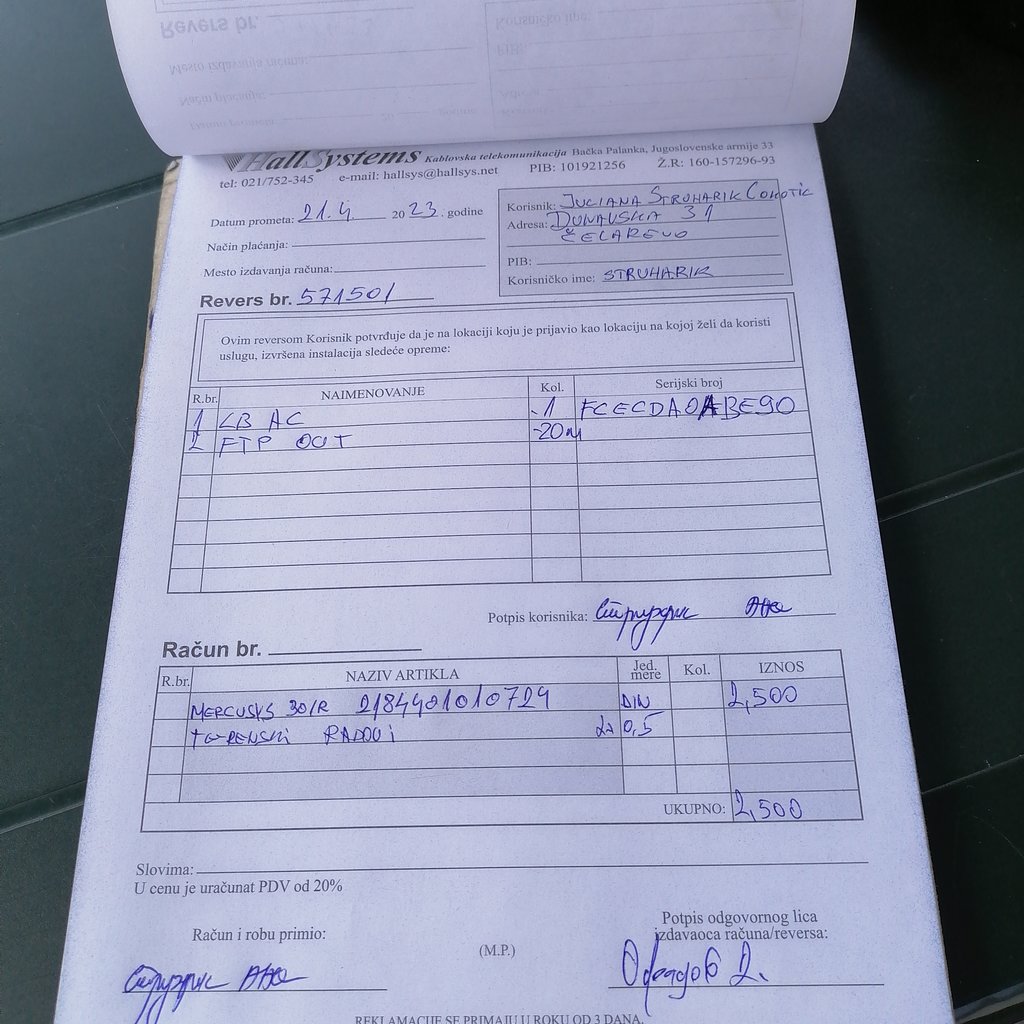 HallSystems Kablovska telekomunikacija Bačka Palanka, Jugoslovenske armije 33
tel: 021/752-345 e-mail: hallsys@hallsys.net PIB: 101921256 Ž.R: 160-157296-93
Datum prometa: 21.4 2023. godine
Način plaćanja:
Mesto izdavanja računa:
Revers br. 571501
Korisnik: JULIANA STRUHARIK
Adresa: DUNAVSKA 31
ČELAREVO
PIB:
Korisničko ime: STRUHARIK
Ovim reversom Korisnik potvrđuje da je na lokaciji koju je prijavio kao lokaciju na kojoj želi da koristi
uslugu, izvršena instalacija sledeće opreme:
R.br. NAIMENOVANJE Kol. Serijski broj
1 LB AC -1 FCECDA0ABE90
2 FTP OUT -20m
Potpis korisnika:
Račun br.
R.br. NAZIV ARTIKLA Jed. mere Kol. IZNOS
MERCUSYS 301R 2184401010724 DIN 2,500
TERENSKI RADOVI 0,5
UKUPNO: 2,500
Slovima:
U cenu je uračunat PDV od 20%
Račun i robu primio:
(M.P.)
Potpis odgovornog lica
izdavaoca računa/reversa:
REKLAMACIJE SE PRIMAJU U ROKU OD 3 DANA.